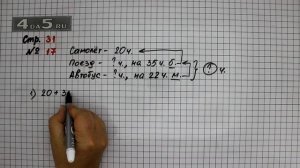 4a5ru
Стр. 31
№ 17
Самолёт – 20 ч.
Поезд – ? ч., на 35 ч. б.
Автобус – ? ч., на 22 ч. м.
? ч.
1) 20 + 3